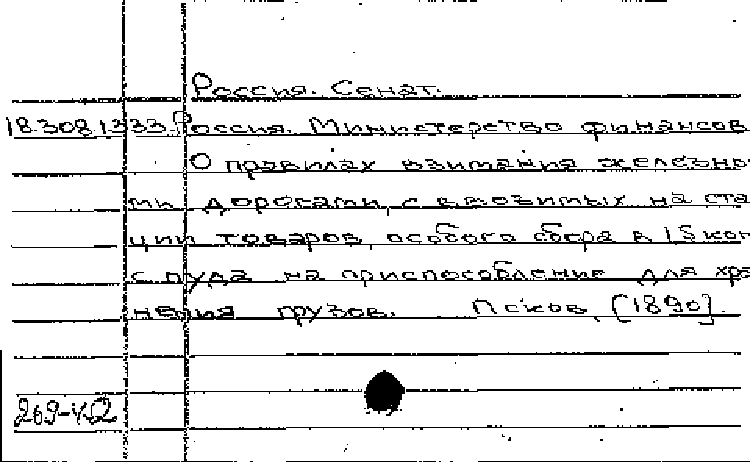 Россия. Сенат.
18.308.1.333. Россия. Министерство финансов
О правилах взимания железно
ми дорогами, с ввозимых на ста
ции товаров, особого сбора в 15 коп
с пуда на приспособление для хра
нения грузов. Псков, [1890].